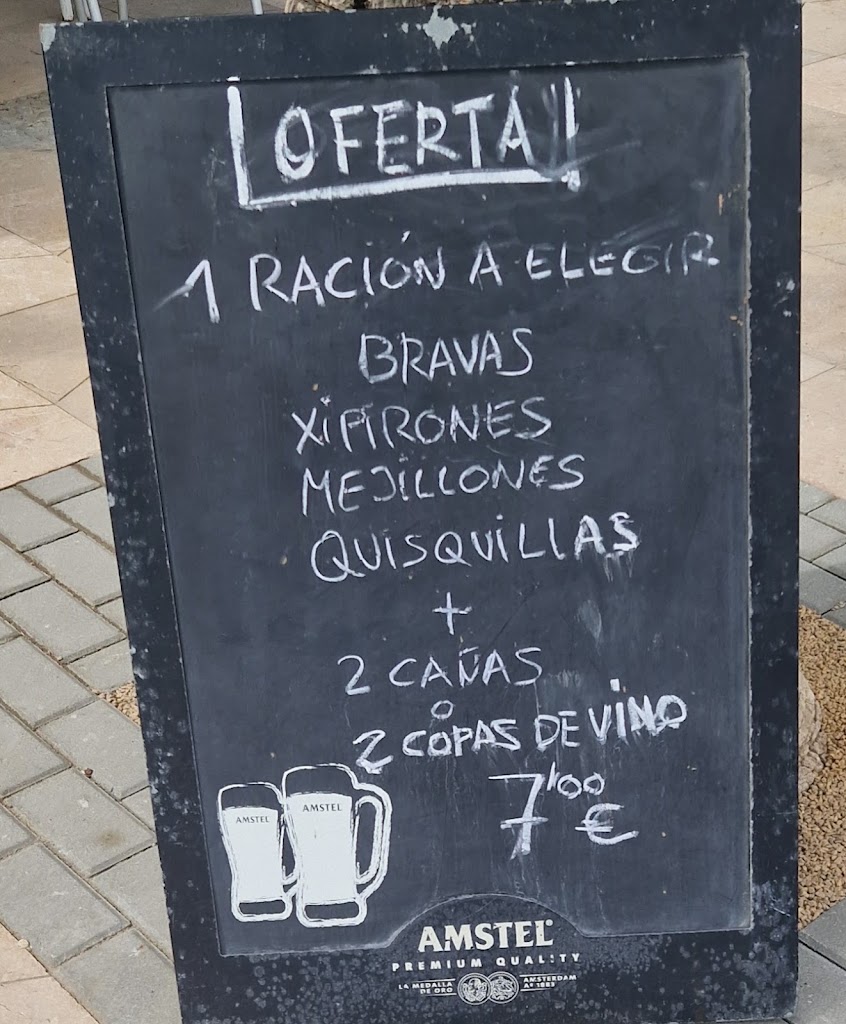 OFERTA
1 RACIÓN A ELEGIR
BRAVAS
XIPIRONES
MEJILLONES
QUISQUILLAS
+
2 CAÑAS
O
2 COPAS DE VINO
7'00 €
AMSTEL
AMSTEL
AMSTEL
PREMIUM QUALITY
LA MEDALLA DE ORO
AMSTERDAM Aº 1883